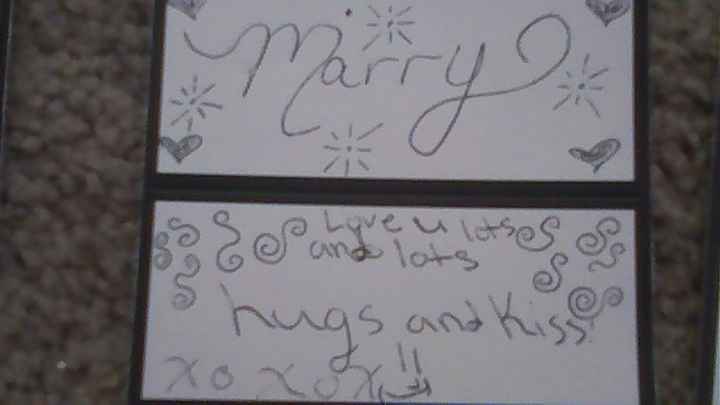 Marry
Love u lots
and lots
hugs and Kiss
xo xox